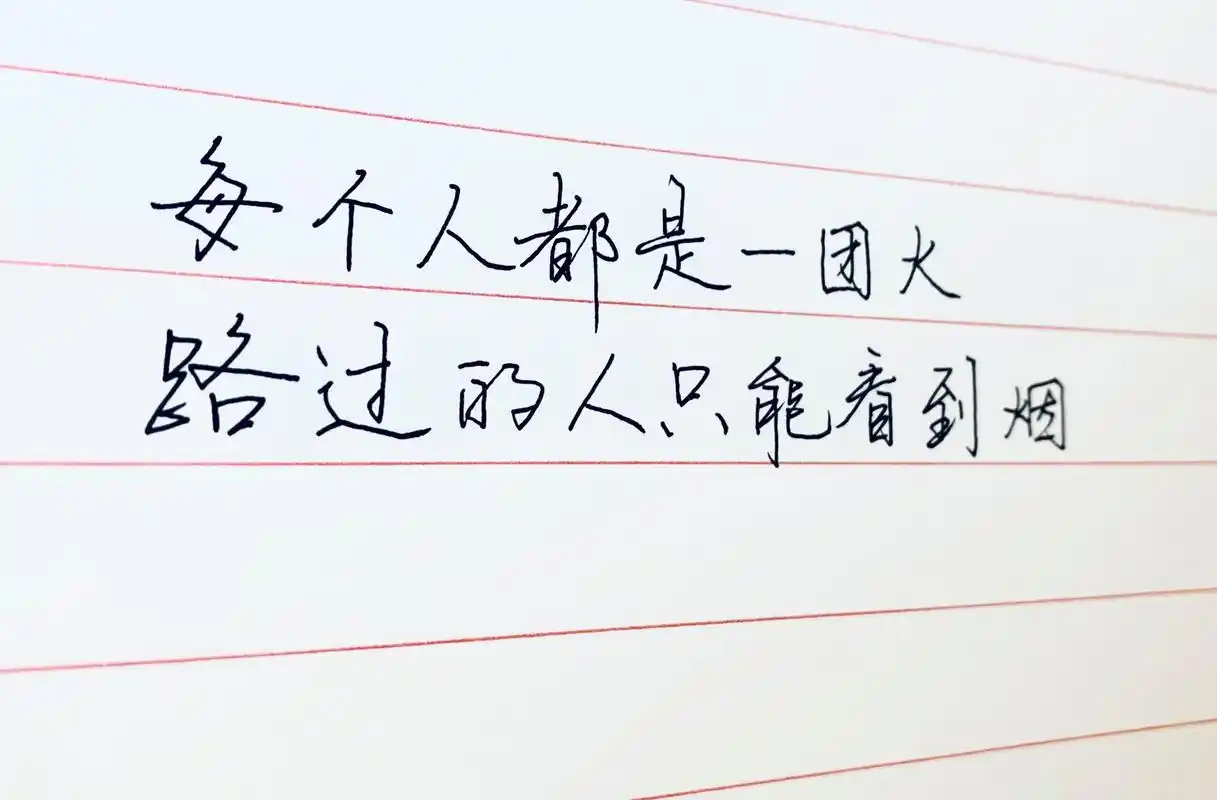 每个人都是一团火
路过的人只能看到烟